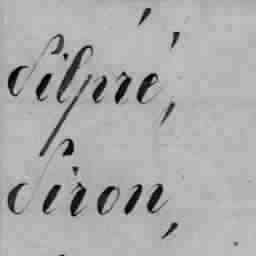 Silpré,
Siron,